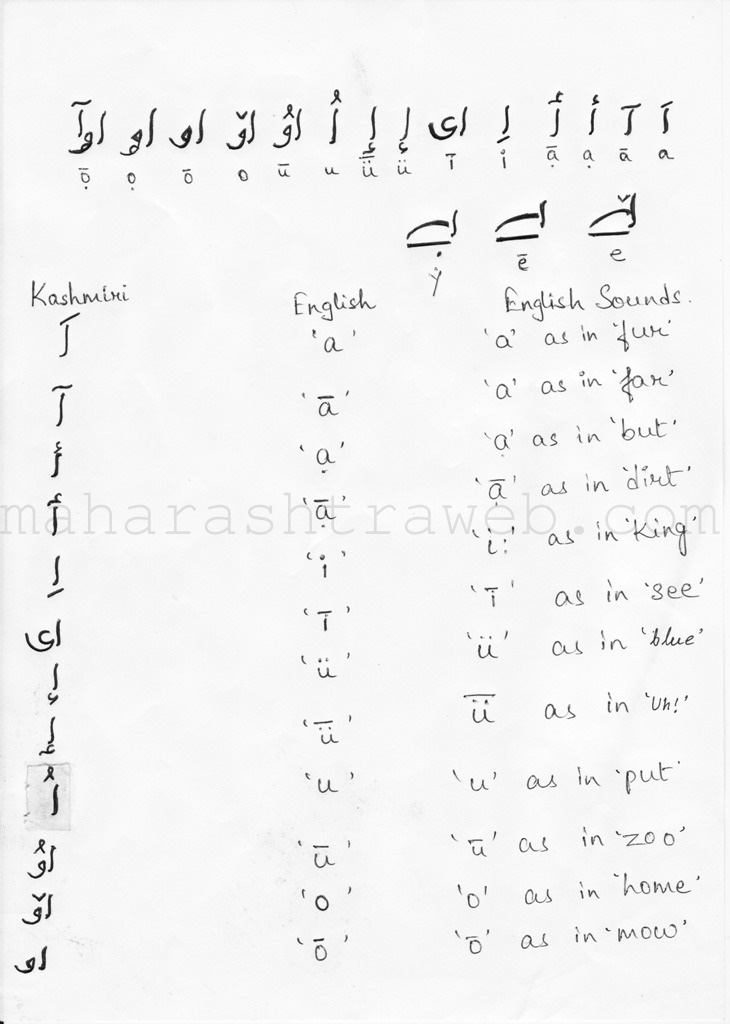 اَ آ أ أٓ اِ ای إ إٟ اُ اوٗ اۆ او اۄ اۄآ
a ā ạ ạ̄ i ī ü ǖ u ū o ō ọ ọ̄
اێ اے اؠ
e ē ẏ
Kashmiri English English Sounds.
اَ 'a' 'a' as in 'fur'
آ 'ā' 'a' as in 'far'
أ 'ạ' 'ạ' as in 'but'
أٓ 'ạ̄' 'ạ̄' as in 'dirt'
اِ 'i' 'i:' as in 'King'
ای 'ī' 'ī' as in 'see'
إ 'ü' 'ü' as in 'blue'
إٟ 'ǖ' ǖ as in 'Uh!'
اُ 'u' 'u' as in 'put'
اوٗ 'ū' 'ū' as in 'zoo'
اۆ 'o' 'o' as in 'home'
او 'ō' 'ō' as in 'mow'
maharashtraweb.com